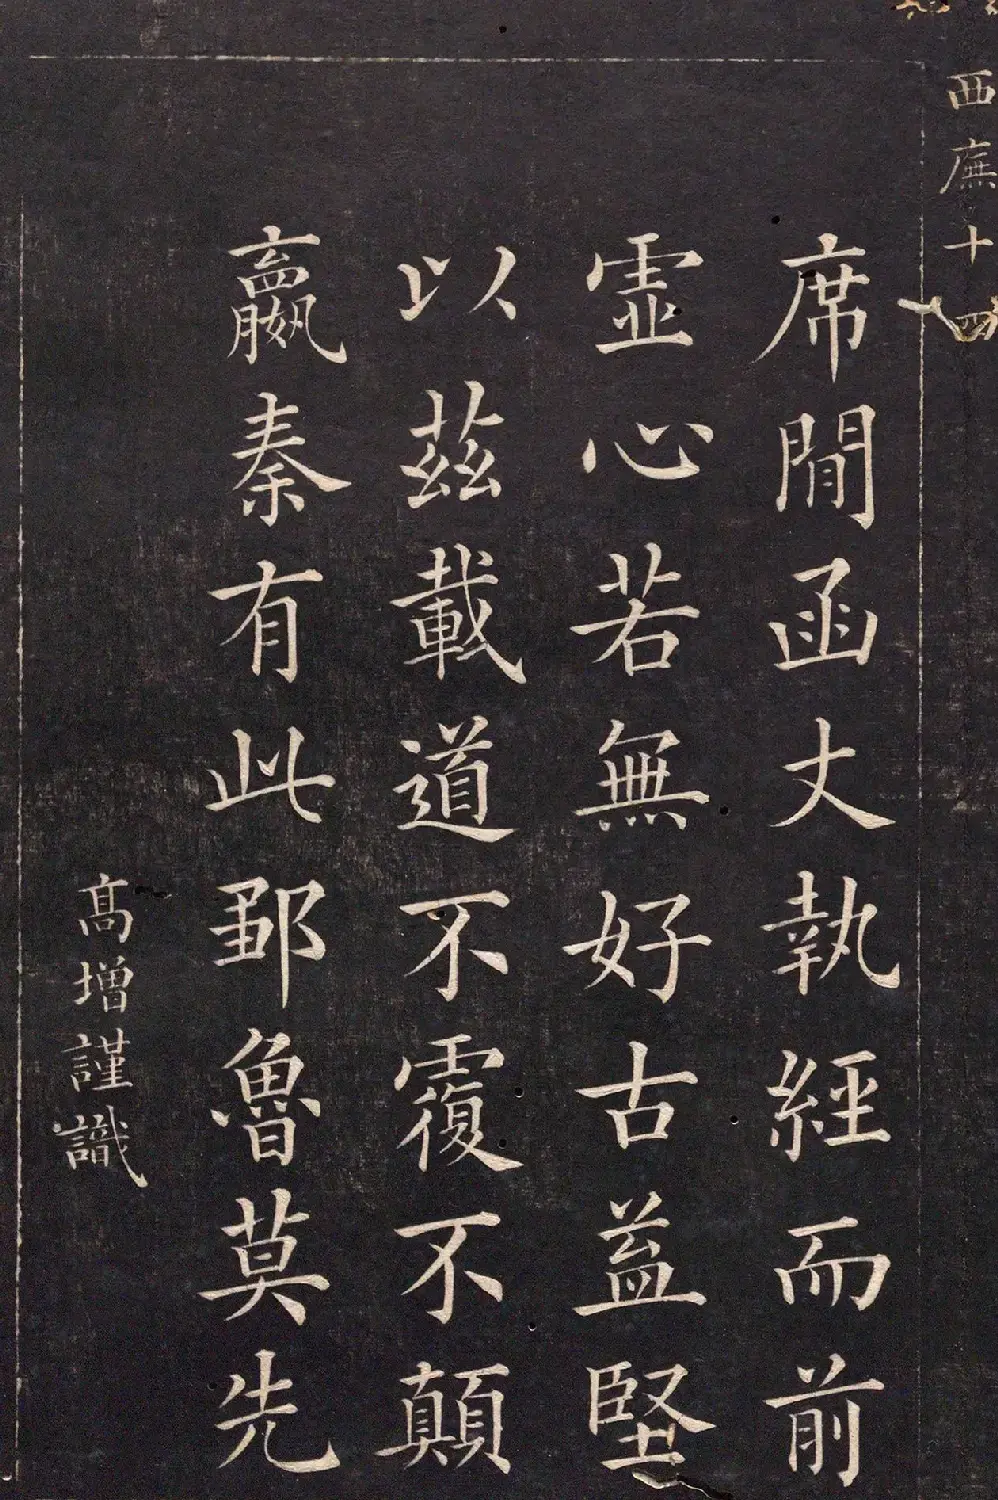 西廡十四
席閒函丈執經而前
虛心若無好古益堅
以茲載道不覆不顛
嬴秦有此鄒魯莫先
高增謹識